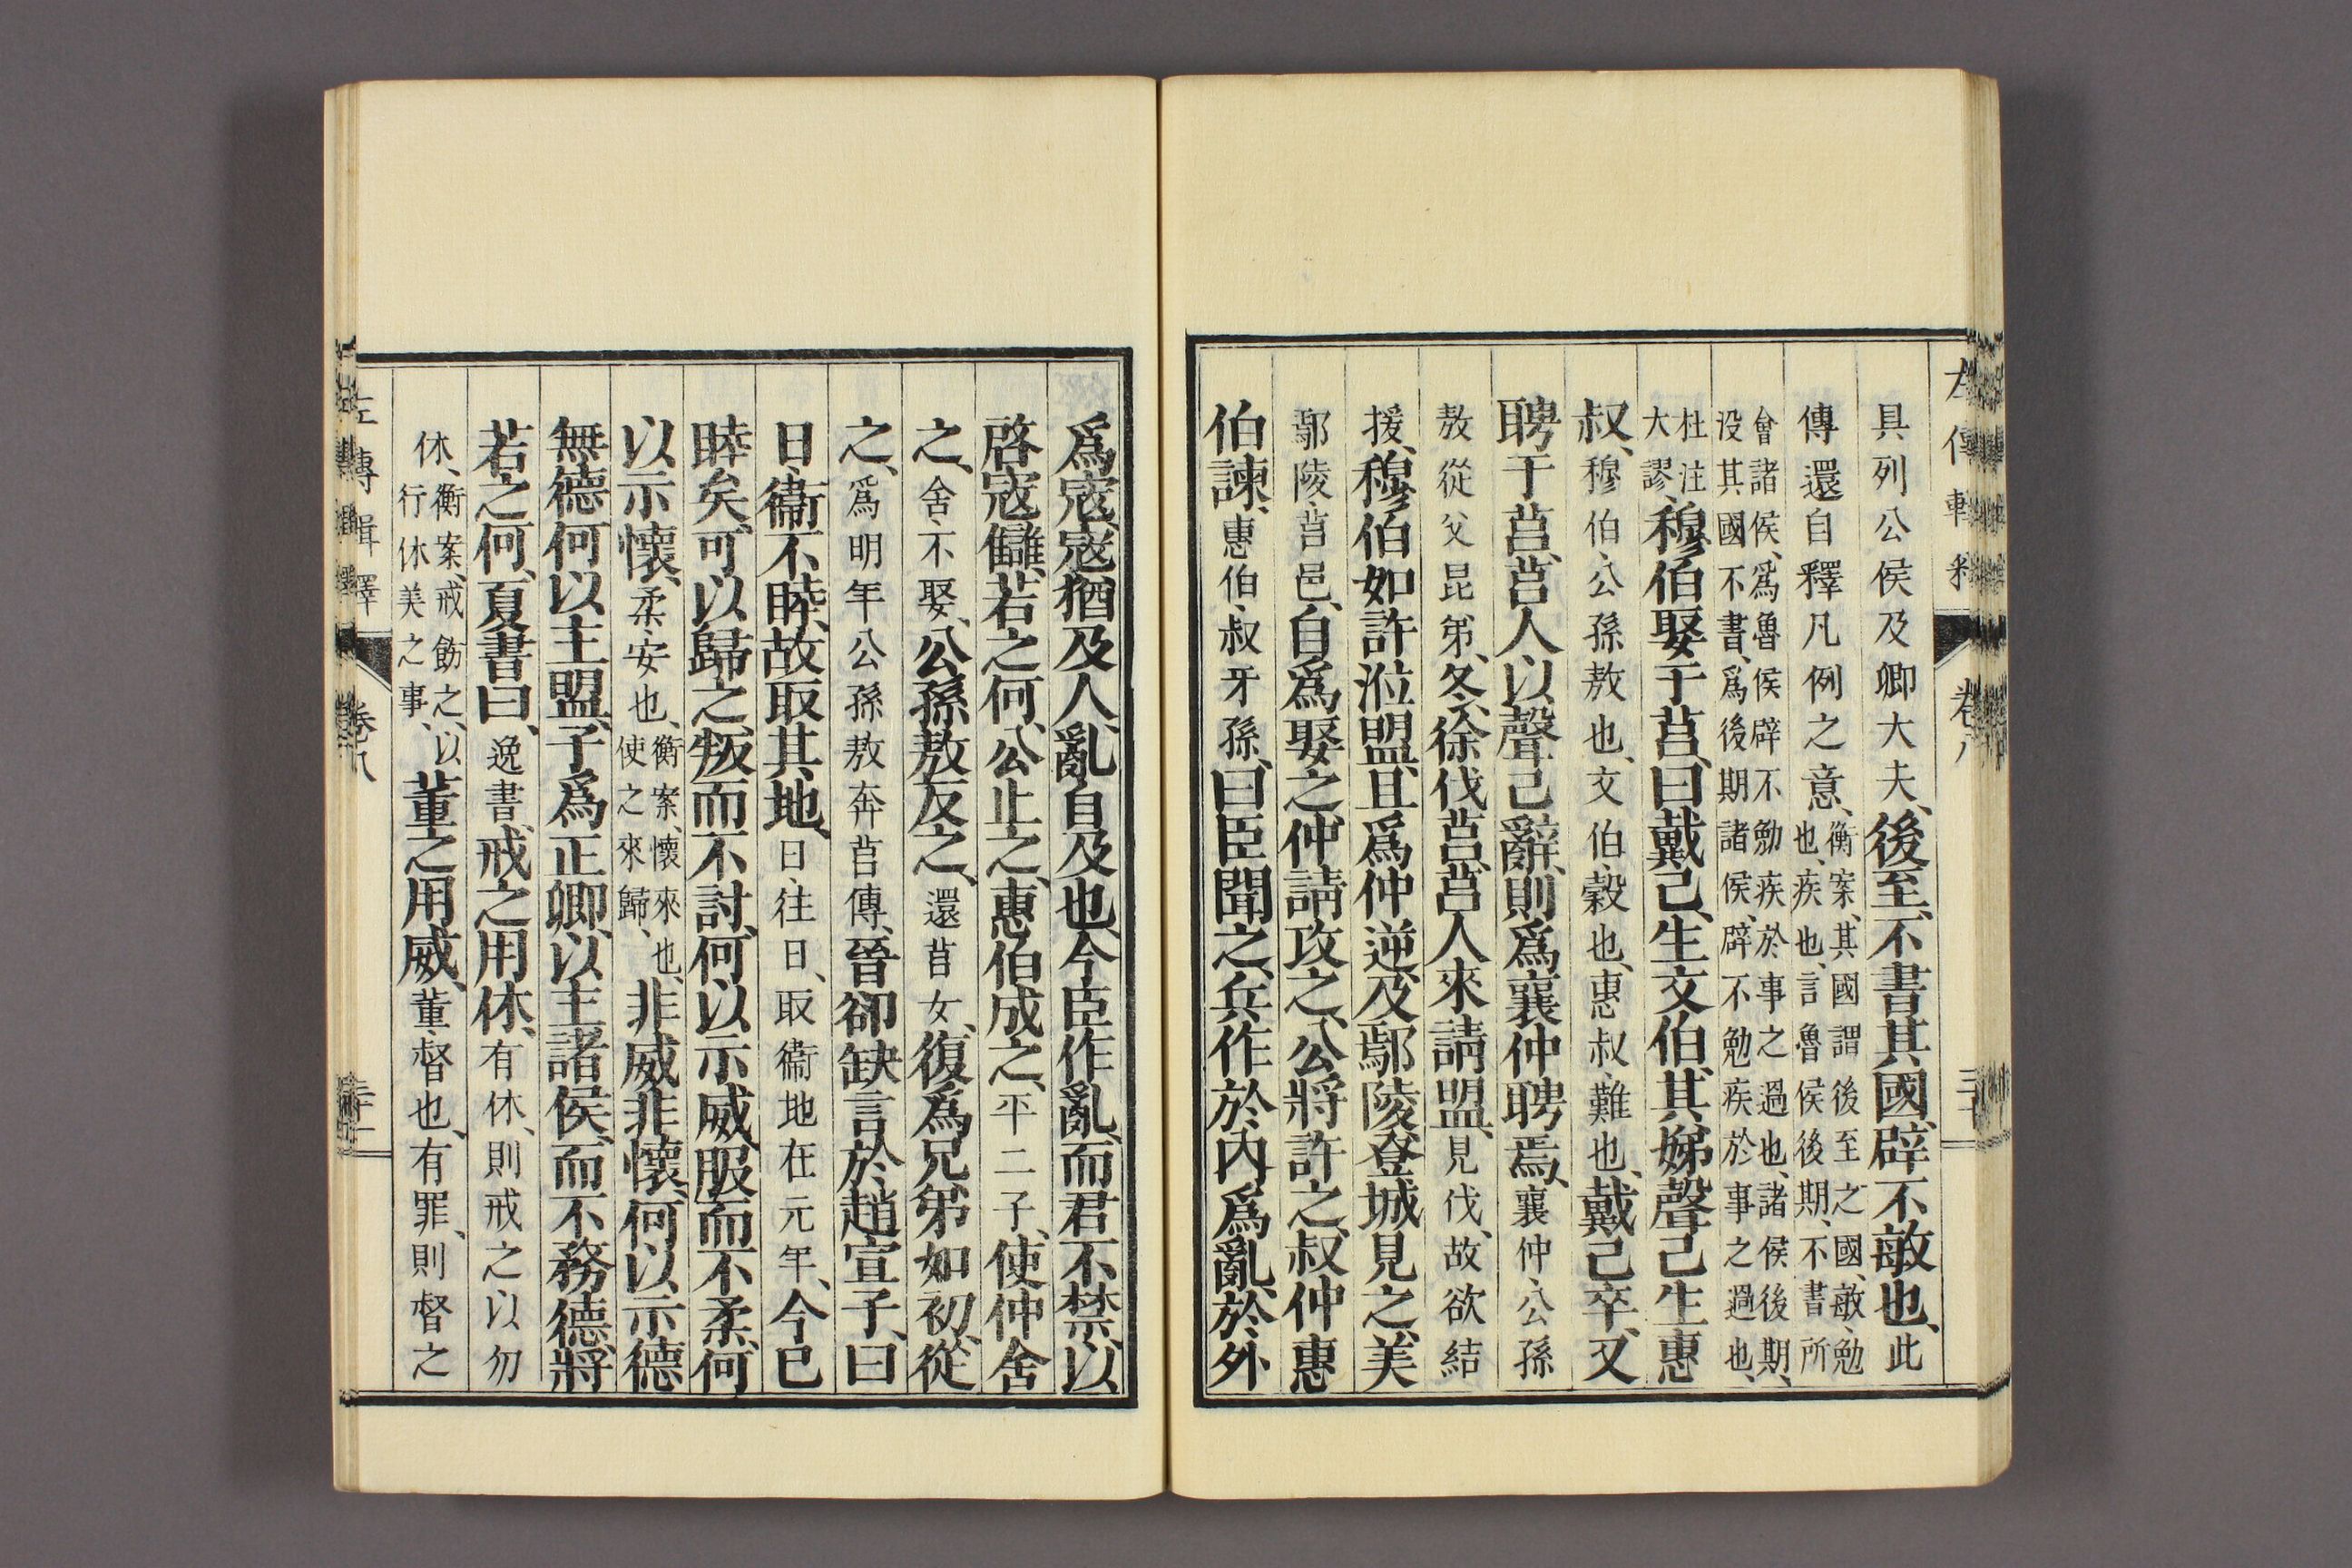 具列公侯及卿大夫、後至、不書其國、辟不敏也、此
傳還自釋凡例之意、衡案、其國謂後至之國、敏、勉也、疾也、言魯侯後期、不書所
會諸侯、爲魯侯辟不勉疾於事之過也、諸侯後期、没其國不書、爲後期諸侯、辟不勉疾於事之過也、
杜注大謬、穆伯娶于莒、曰戴己、生文伯、其娣聲己生惠
叔、穆伯、公孫敖也、文伯、穀也、惠叔、難也、戴己卒、又
聘于莒、莒人以聲己辭、則爲襄仲聘焉、襄仲、公孫
敖從父昆弟、冬、徐伐莒、莒人來請盟、見伐、故欲結
援、穆伯如許涖盟、且爲仲逆、及鄢陵、登城見之、美、
鄢陵、莒邑、自爲娶之、仲請攻之、公將許之、叔仲惠
伯諫、惠伯、叔牙孫、曰、臣聞之、兵作於內爲亂、於外
爲寇、寇猶及人、亂自及也、今臣作亂、而君不禁、以
啓寇讎、若之何、公止之、惠伯成之、平二子、使仲舍
之、舍、不娶、公孫敖反之、還莒女、復爲兄弟如初、從
之、爲明年公孫敖奔莒傳、晉郤缺言於趙宣子、曰、
日衞不睦、故取其地、日、往日、取衞地在元年、今已
睦矣、可以歸之、叛而不討、何以示威、服而不柔、何
以示懷、柔、安也、衡案、懷、來也、使之來歸、非威非懷、何以示德、
無德何以主盟、子爲正卿、以主諸侯、而不務德、將
若之何、夏書曰、逸書、戒之用休、有休、則戒之以勿
休、衡案、戒飭之、以行休美之事、董之用威、董、督也、有罪、則督之
左傳輯釋
卷八